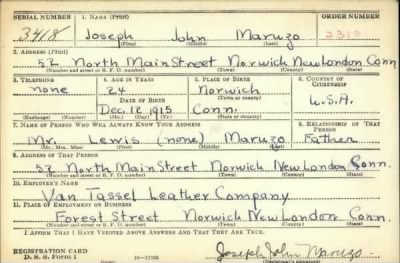 SERIAL NUMBER 1. NAME (Print) ORDER NUMBER
3418 Joseph John Maruzo 2310
(First) (Middle) (Last)
2. ADDRESS (Print)
52 North Main Street Norwich New London Conn
(Number and street or R. F. D. number) (Town) (County) (State)
3. TELEPHONE 4. AGE IN YEARS 5. PLACE OF BIRTH 6. COUNTRY OF CITIZENSHIP
none 24 Norwich
(Town or county)
DATE OF BIRTH
Dec 12 1915 Conn. U.S.A.
(Exchange) (Number) (Mo.) (Day) (Yr.) (State or country)
7. NAME OF PERSON WHO WILL ALWAYS KNOW YOUR ADDRESS 8. RELATIONSHIP OF THAT PERSON
Mr. Lewis (none) Maruzo Father
(Mr., Mrs., Miss) (First) (Middle) (Last)
9. ADDRESS OF THAT PERSON
52 North Main Street Norwich New London Conn.
(Number and street or R. F. D. number) (Town) (County) (State)
10. EMPLOYER'S NAME
Van Tassel Leather Company
11. PLACE OF EMPLOYMENT OR BUSINESS
Forest Street Norwich New London Conn.
(Number and street or R. F. D. number) (Town) (County) (State)
I AFFIRM THAT I HAVE VERIFIED ABOVE ANSWERS AND THAT THEY ARE TRUE.
REGISTRATION CARD
D. S. S. Form 1 Joseph John Maruzo